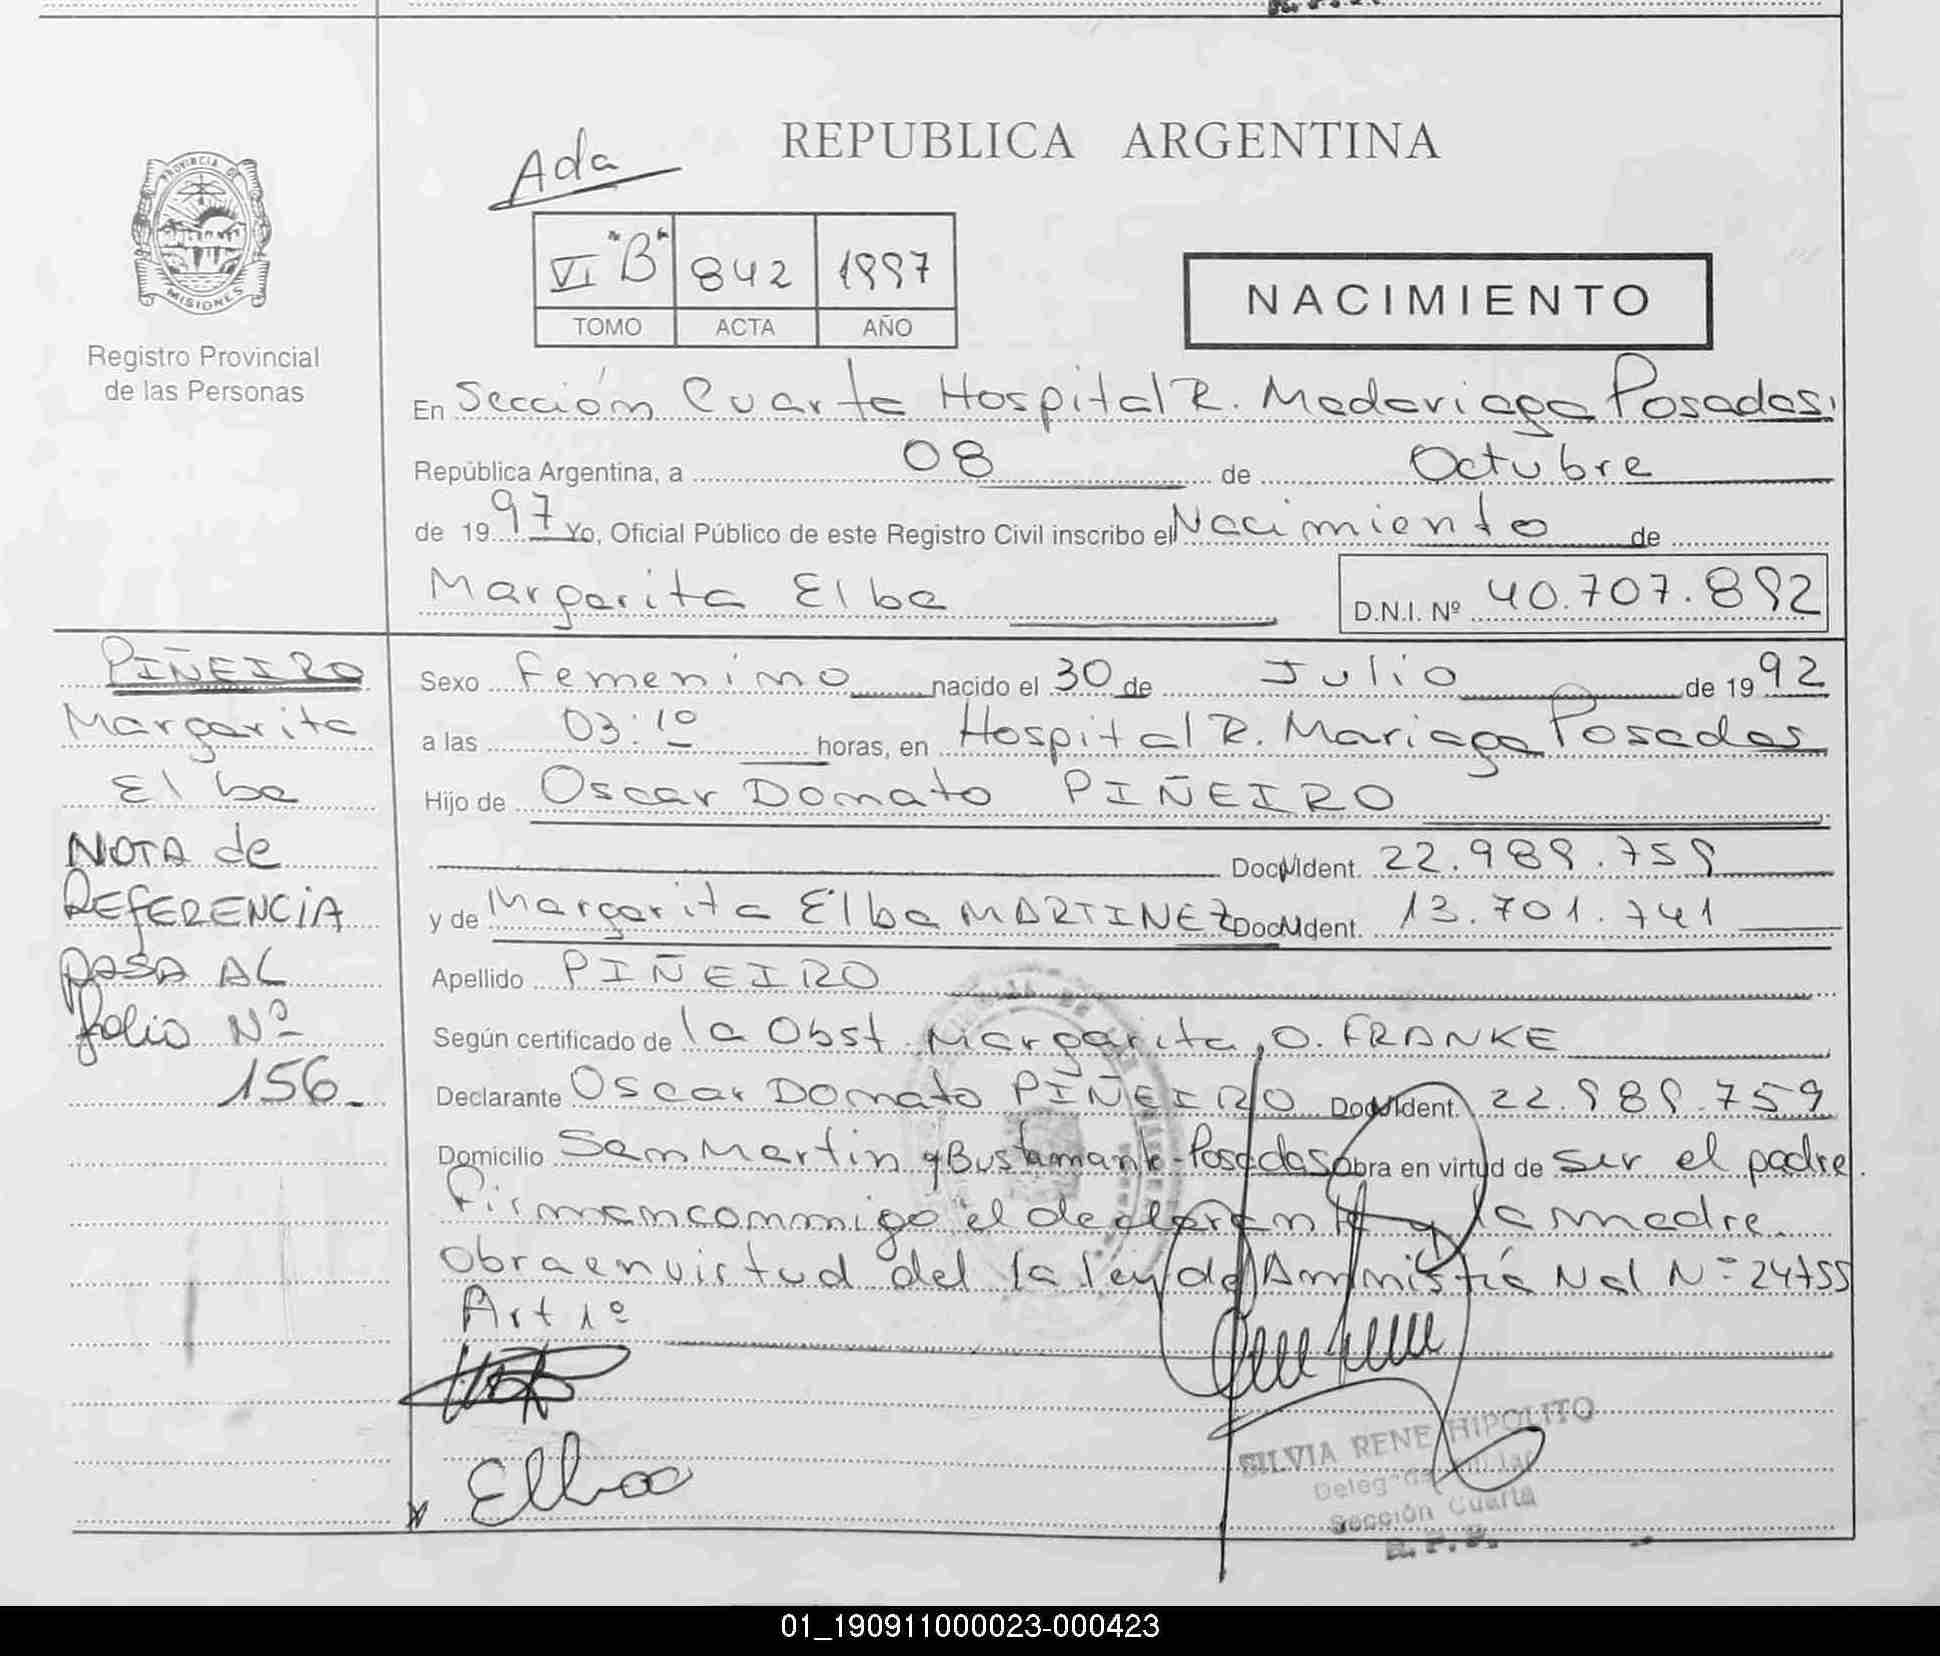 REPUBLICA ARGENTINA
Ada
PROVINCIA DE
MISIONES
Registro Provincial
de las Personas
VI "B" 842 1997
TOMO ACTA AÑO
NACIMIENTO
En Sección Cuarta Hospital R. Madariaga Posadas,
República Argentina, a 08 de Octubre
de 1997 Yo, Oficial Público de este Registro Civil inscribo el Nacimiento de
Margarita Elba D.N.I. Nº 40.707.892
PIÑEIRO
Margarita
Elba
NOTA de
REFERENCIA
PASA AL
folio Nº
156.
Sexo Femenino nacido el 30 de Julio de 1992
a las 03:10 horas, en Hospital R. Mariaga Posadas
Hijo de Oscar Donato PIÑEIRO
Doc. Ident. 22.989.759
y de Margarita Elba MARTINEZ Doc. Ident. 13.701.741
Apellido PIÑEIRO
Según certificado de la Obst. Margarita O. FRANKE
Declarante Oscar Donato PIÑEIRO Doc. Ident. 22.989.759
Domicilio San Martin y Bustamante - Posadas Obra en virtud de ser el padre.
Firman conmigo el declarante y la madre.
Obra en virtud del la ley de Amnistía Nal Nº 24755
Art 1º
Elba
SILVIA RENE HIPOLITO
Sección Cuarta
R. P. P.
01_190911000023-000423